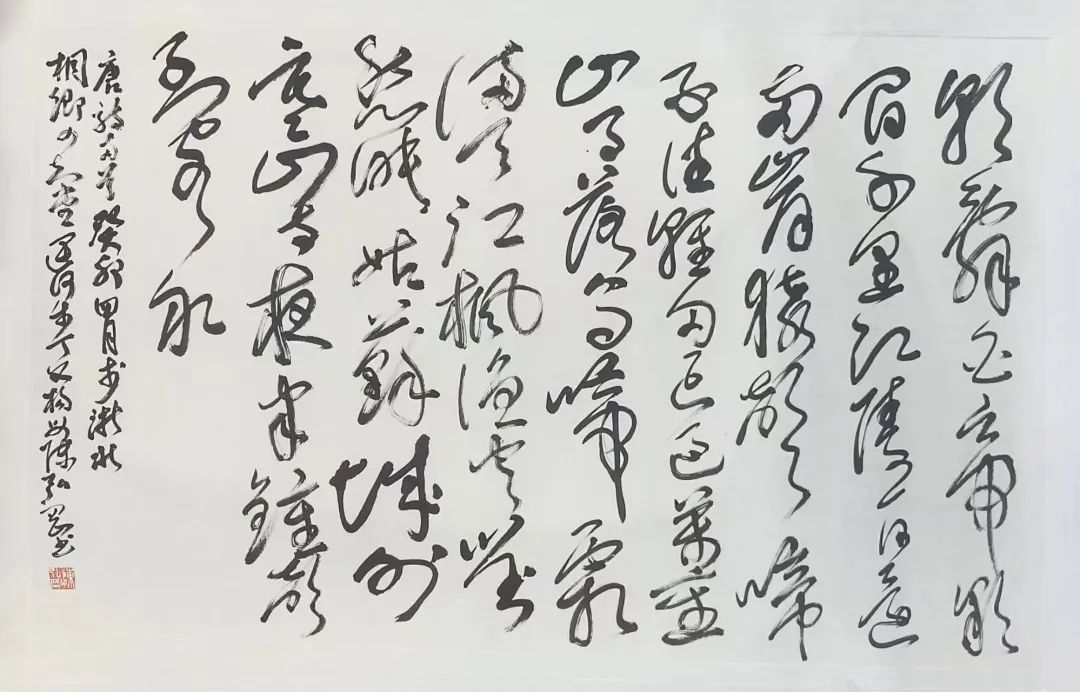 朝辭白帝彩
間千里江陵一日還
兩岸猿聲啼
不住輕舟已過萬重
山月落烏啼霜
滿天江楓漁火對
愁眠姑蘇城外
寒山寺夜半鐘聲
到客船
唐詩兩首癸卯四月
桐鄉